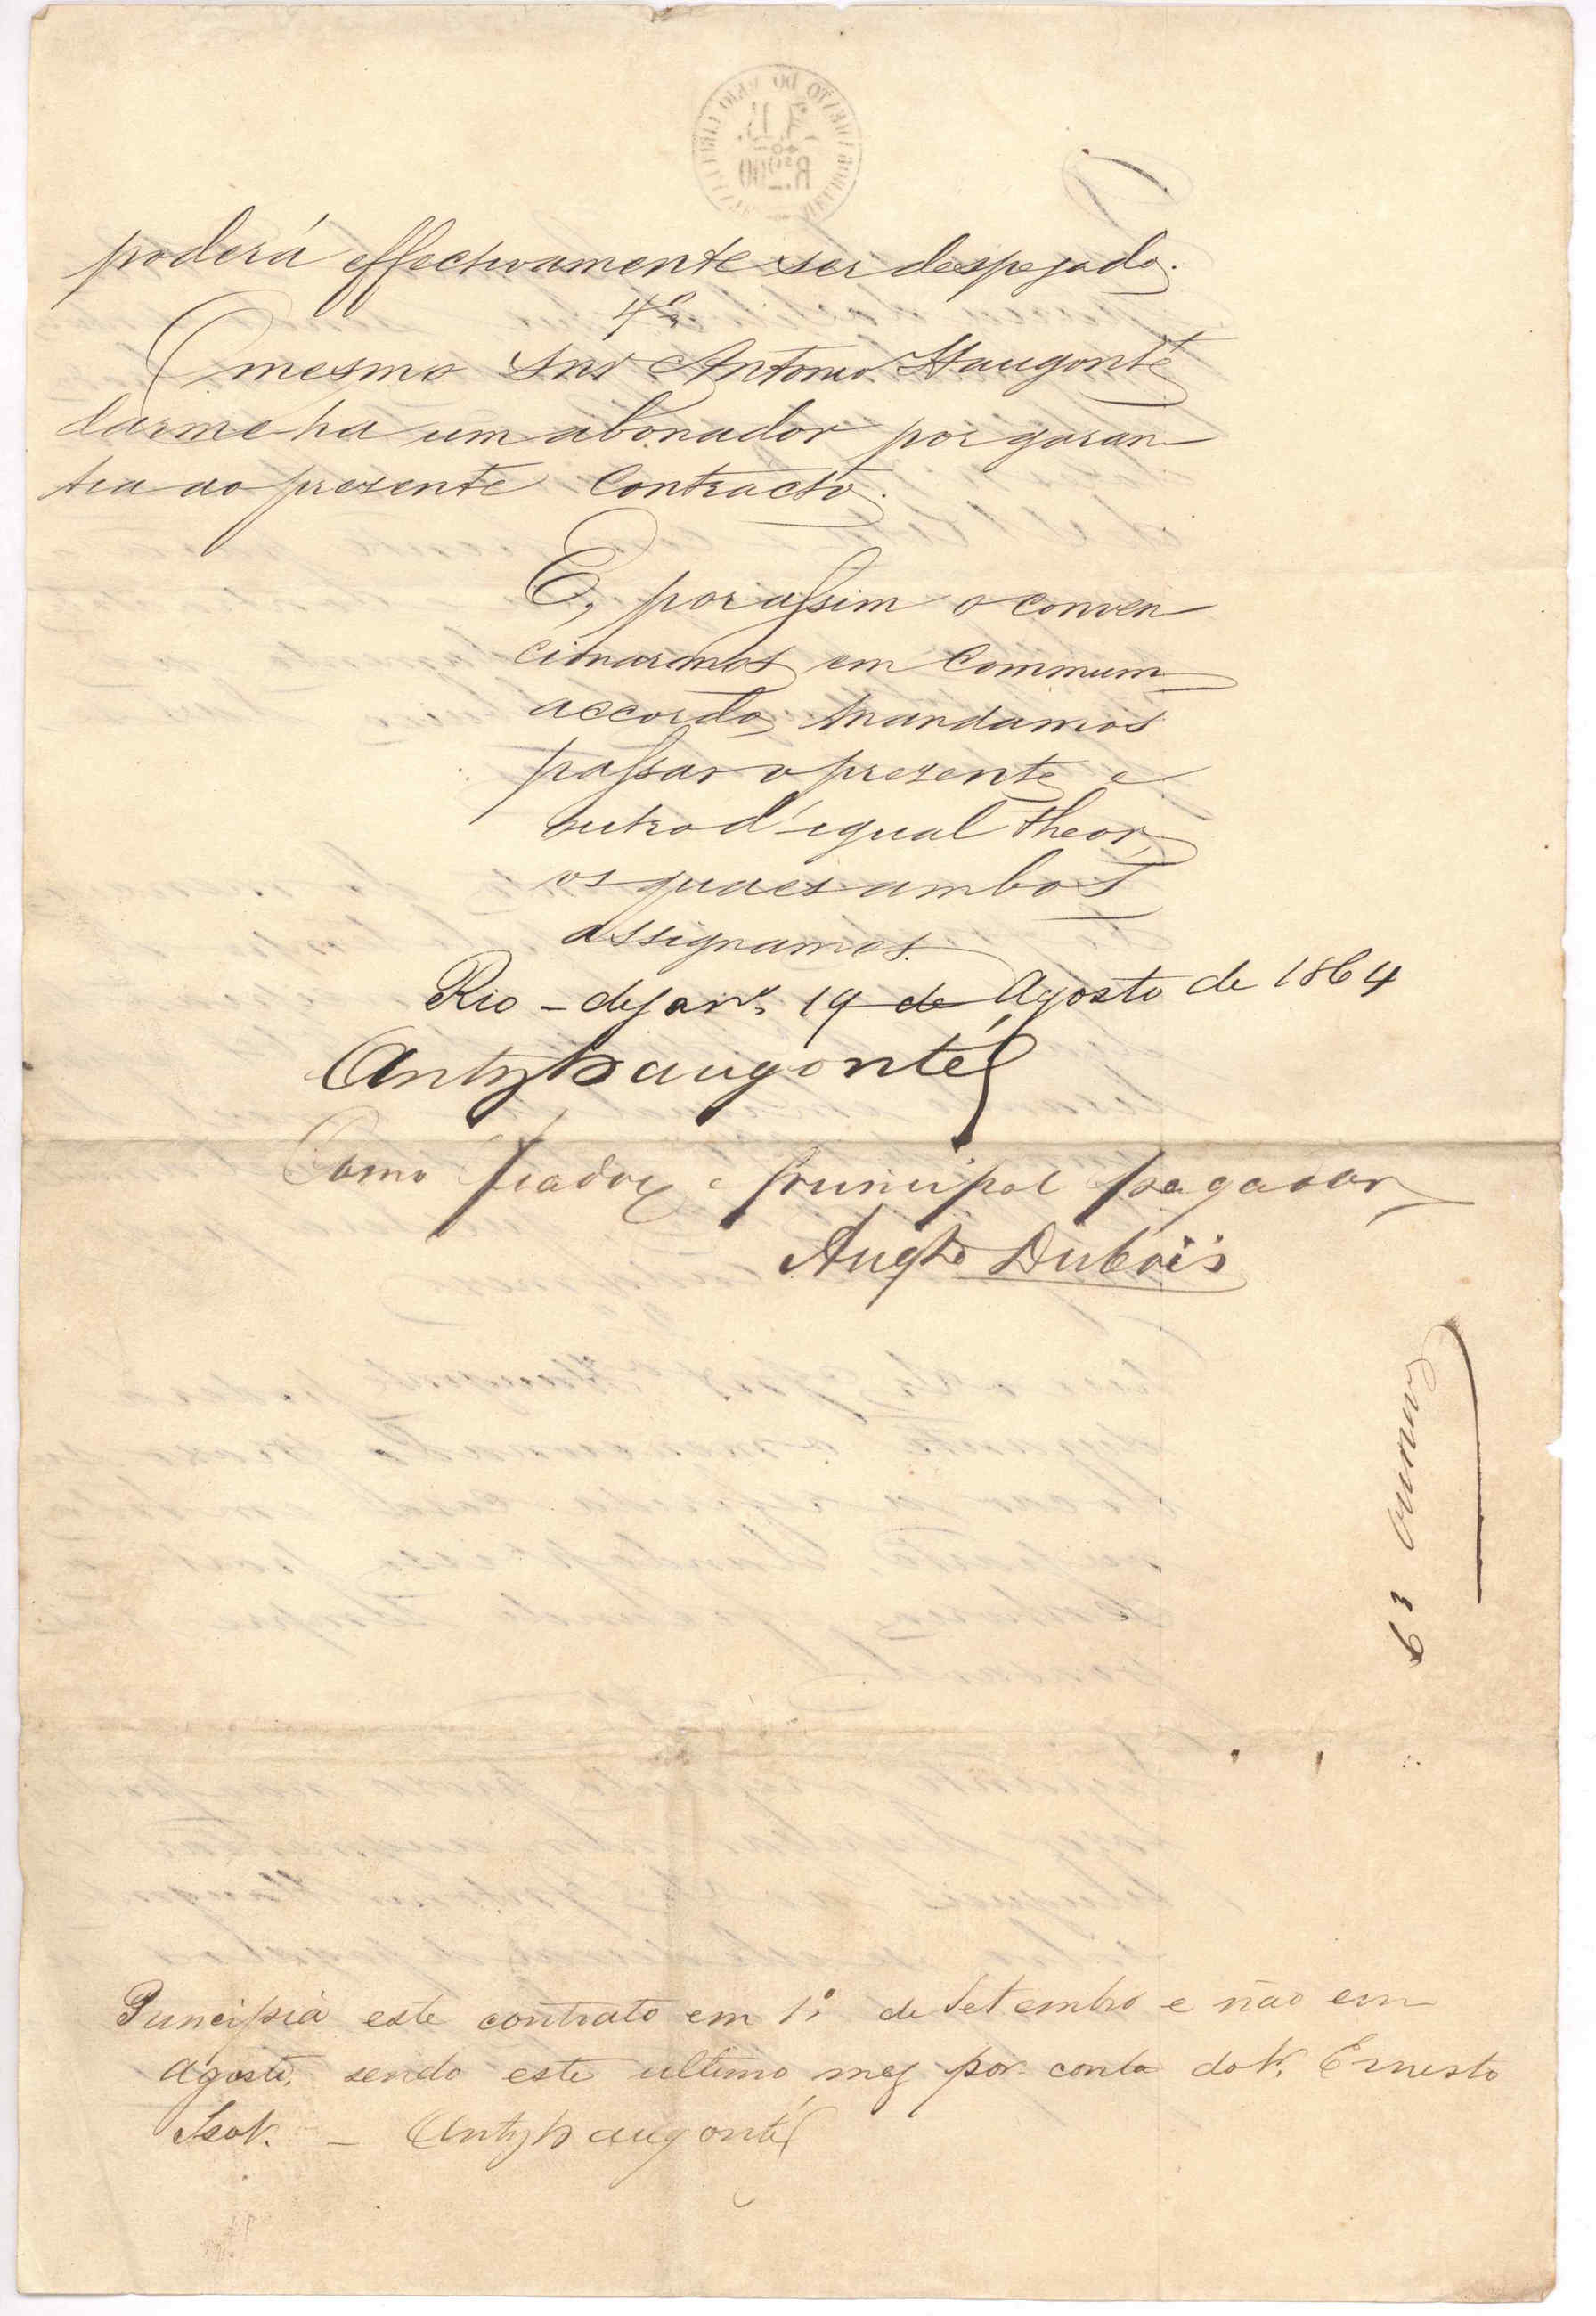 poderá effectivamente ser despejado.
4º
O mesmo Snr Antonio Haugonté
darme-ha um abonador por garan-
tia ao presente Contracto.
E, por assim o conven
cionarmos em Commum
accordo, mandamos
passar o presente e
outro d'igual theor,
os quaes ambos
assignamos.
Rio - de Janrº 19 de Agosto de 1864
Antº Haugonté
Como fiador e principal pagador
Augto Dubois
Principia este contrato em 1º de Setembro e não em
Agosto, sendo este ultimo mez por conta do Sr. Ernesto
Antº Haugonté